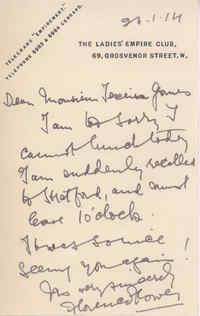 TELEGRAMS "EMPIREMENT."
TELEPHONE 5003 & 5004 GERRARD.
THE LADIES' EMPIRE CLUB,
69, GROSVENOR STREET, W.
1.14
Dear Monsieur Teixeira
I am so sorry I
cannot lunch today
I am suddenly recalled
to Stratford, and must
leave 1 o'clock.
It was so nice
seeing you again!
Yrs very sincerely
Florence